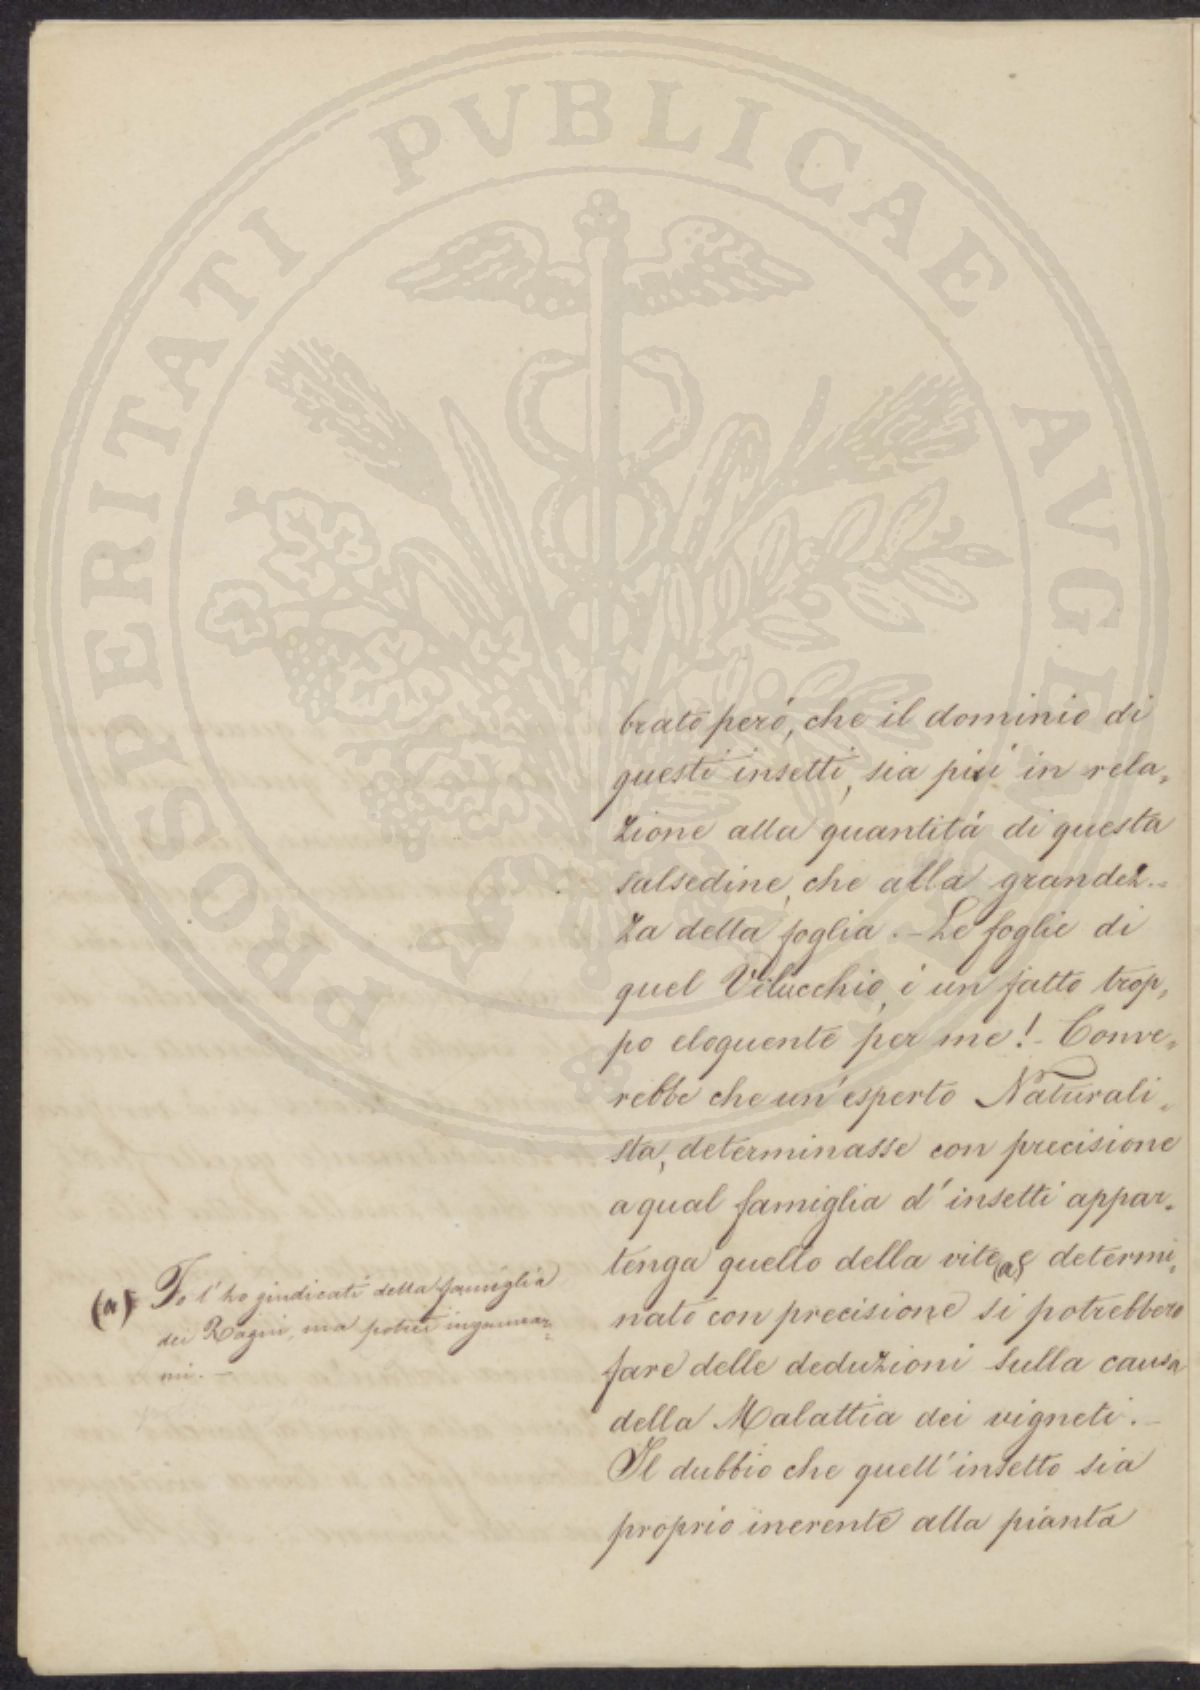 PROSPERITATI PVBLICAE AVGENDAE
brato però, che il dominio di
questi insetti, sia più in rela„
zione alla quantità di questa
salsedine, che alla grandez..
za della foglia. - Le foglie di
quel Vilucchio, è un fatto trop„
po eloquente per me! - Conve„
rebbe che un'esperto Naturali„
sta, determinasse con precisione
a qual famiglia d'insetti appar„
tenga quello della vite (a) e determi„
nato con precisione si potrebbero
fare delle deduzioni sulla causa
della Malattia dei vigneti. -
Il dubbio che quell'insetto sia
proprio inerente alla pianta
(a) Io l'ho giudicati della famiglia
dei Ragni, ma potrei ingannar„
mi. -